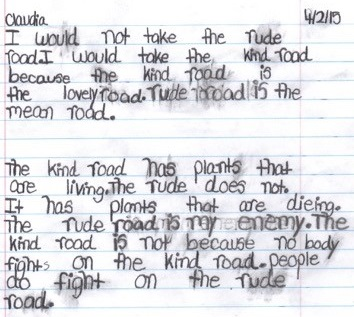 Claudia 4/2/15
I would not take the rude
road.I would take the kind road
because the kind road is
the lovely road.rude road is the
mean road.
The kind road has plants that
are living.The rude does not.
It has plants that are dieing.
The rude road is my enemy.The
kind road is not because no body
fights on the kind road.people
do fight on the rude
road.